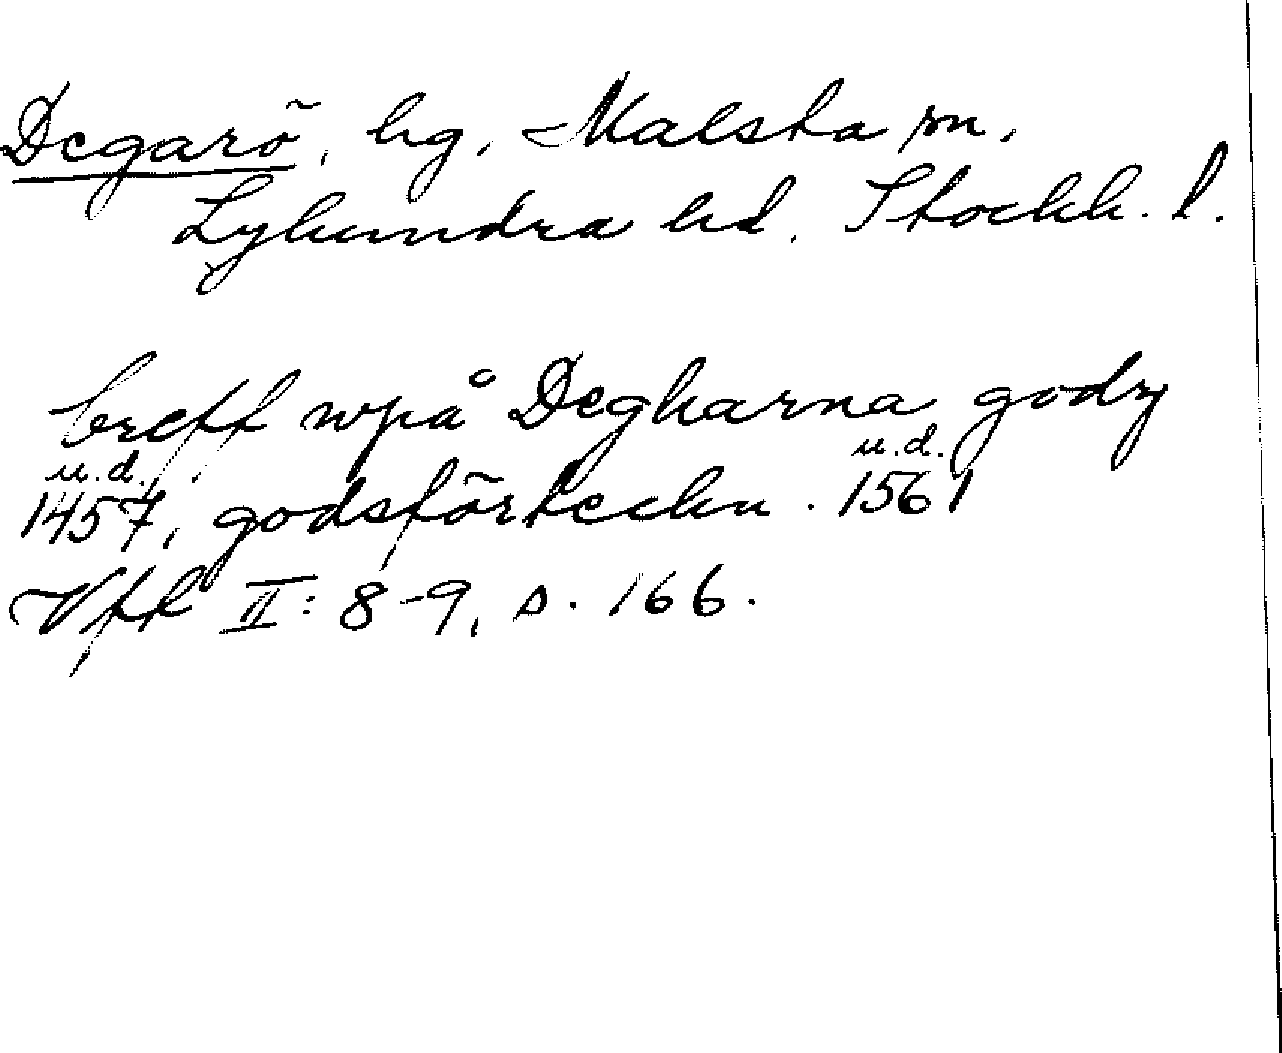 Degarö, hg, Malsta sn,
Lyhundra hd. Stockh. l.
breff wpå Degharna godz
u.d. u.d.
1457, godsförteckn. 1561
Vff II: 8-9, s. 166.